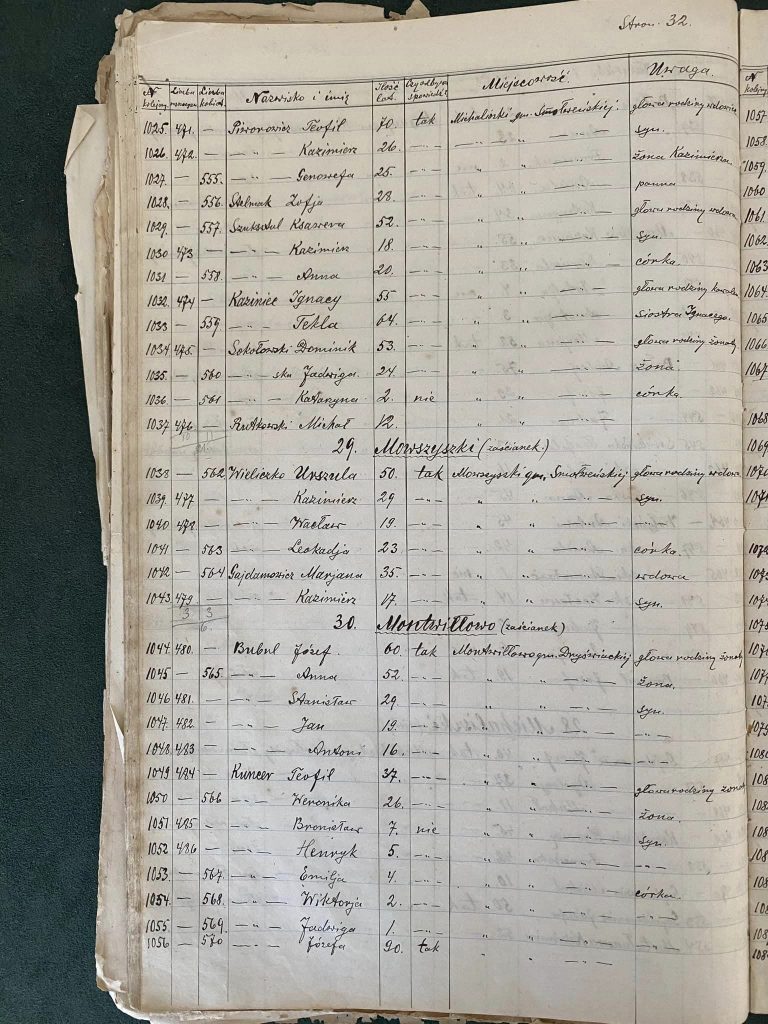 Stron. 32.
N kolejny. Liczba mężczyzn Liczba kobiet. Nazwisko i imię Ilość lat. Czy odbył spowiedź? Miejscowość. Uwaga.
1025. 471. — Piworowicz Teofil 70. tak Michaliński gm. Smołweńskiej. głowa rodziny wdowiec
1026. 472. — —"— Kazimierz 26. —"— " " —"— syn.
1027. — 555. —"— Genowefa 25. —"— " " —"— żona Kazimierza.
1028. — 556. Stelmak Zofja 28. —"— " " —"— panna
1029. — 557. Szukstul Ksawera 52. —"— " " —"— głowa rodziny wdowa
1030 473 — —"— Kazimierz 18. —"— " " —"— syn.
1031 — 558. —"— Anna 20. —"— " " —"— córka.
1032. 474 — Kaziniec Ignacy 55 —"— " " —"— głowa rodziny kawaler
1033 — 559. —"— Tekla 64. —"— " " —"— siostra Ignacego.
1034. 475. — Sokołowski Dominik 53. —"— " " —"— głowa rodziny żonaty
1035. — 560 —"— ska Jadwiga. 24. —"— " " —"— żona
1036 — 561 —"— Katarzyna 2. nie " " —"— córka.
1037. 476. — Rutkowski Michał 12. —"— " " —"—
29. Mowszyszki (zaścianek.)
1038 — 562 Wieliczko Urszula 50. tak Mowszyszki gm. Smołweńskiej głowa rodziny wdowa
1039. 477. — —"— Kazimierz 29 —"— " " —"— syn.
1040 478. — —"— Wacław 19. —"— " " —"— —"—
1041 — 563 —"— Leokadja 23 —"— " " —"— córka.
1042 — 564 Gajdamowicz Marjana 35. —"— " " —"— wdowa
1043. 479 — —"— Kazimierz 17. —"— " " —"— syn.
3 3
6.
30. Montwiłłowo (zaścianek)
1044. 480. — Bubul Józef. 60. tak Montwiłłowo gm. Dryświackiej głowa rodziny żonaty
1045 — 565. —"— Anna 52. —"— " " —"— żona.
1046 481. — —"— Stanisław 29. —"— " " —"— syn.
1047. 482. — —"— Jan 19. —"— " " —"— —"—
1048. 483 — —"— Antoni 16. —"— " " —"— —"—
1049. 484 — Kuncer Teofil 37. —"— " " —"— głowa rodziny żonaty
1050 — 566 —"— Weronika 26. —"— " " —"— żona.
1051 485 — —"— Bronisław 7. nie " " —"— syn.
1052 486 — —"— Henryk 5. —"— " " —"— —"—
1053. — 567. —"— Emilja 4. —"— " " —"— córka.
1054. — 568. —"— Wiktorja 2. —"— " " —"— —"—
1055. — 569. —"— Jadwiga 1. —"— " " —"— —"—
1056 — 570 —"— Józefa 90. tak " " —"—
N kolejny.
1057
1058.
1059.
1060
1061.
1062.
1063
1064.
1065
1066.
1067.
1068
1069.